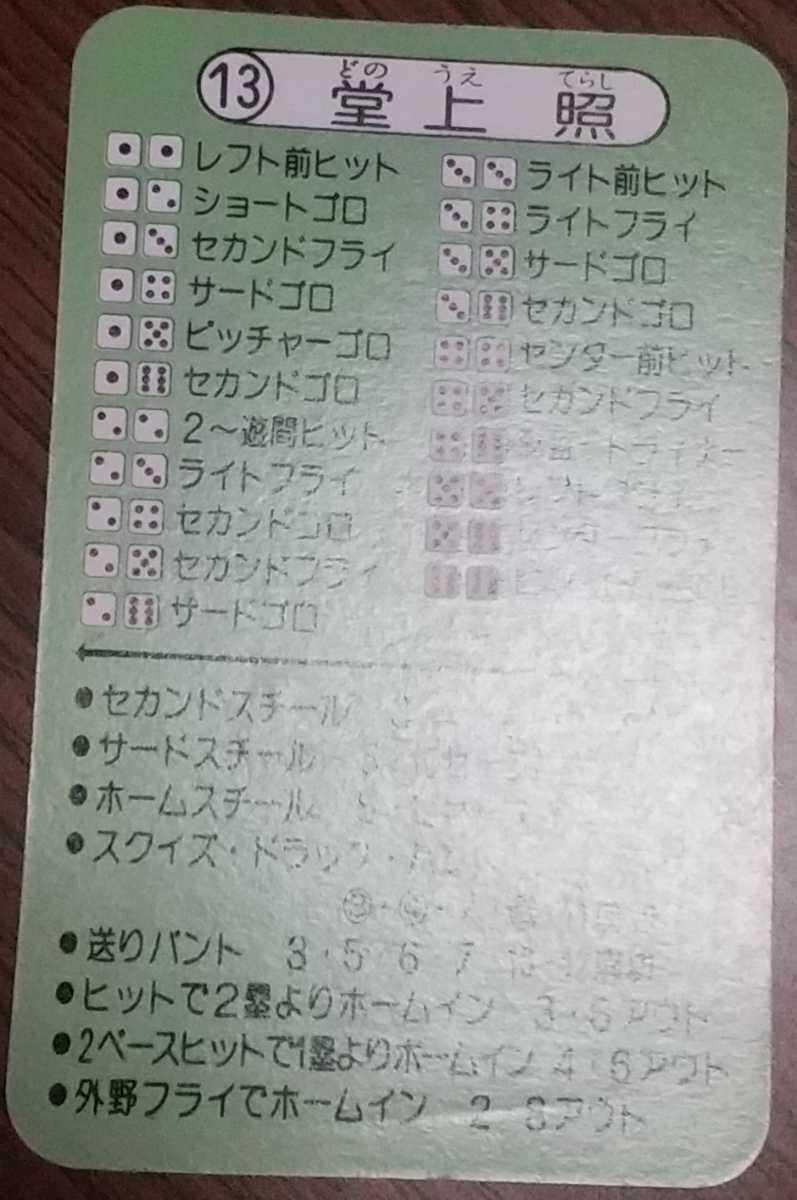 13 堂上 照
どの うえ てらし
レフト前ヒット
ショートゴロ
セカンドフライ
サードゴロ
ピッチャーゴロ
セカンドゴロ
2〜遊間ヒット
ライトフライ
セカンドゴロ
セカンドフライ
サードゴロ
ライト前ヒット
ライトフライ
サードゴロ
セカンドゴロ
センター前ヒット
セカンドフライ
ショートライナー
レフトフライ
●セカンドスチール
●サードスチール
●ホームスチール
●スクイズ・ドラッグ
●送りバント 3・5・6 7
●ヒットで2塁よりホームイン 3・5アウト
●2ベースヒットで1塁よりホームイン 4・6アウト
●外野フライでホームイン 2 8アウト